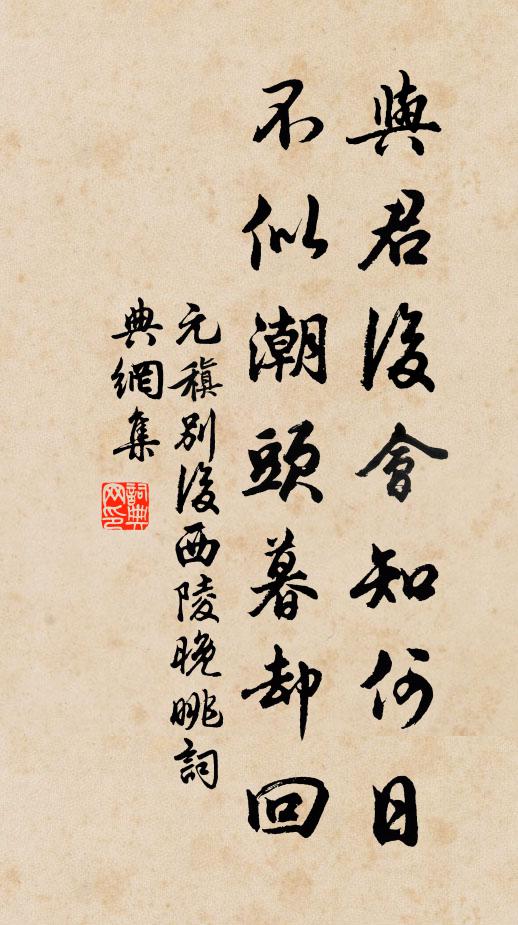 與君後會知何日
不似潮頭暮却回
元稹別後西陵晚眺詞
典網集
詞典
网印